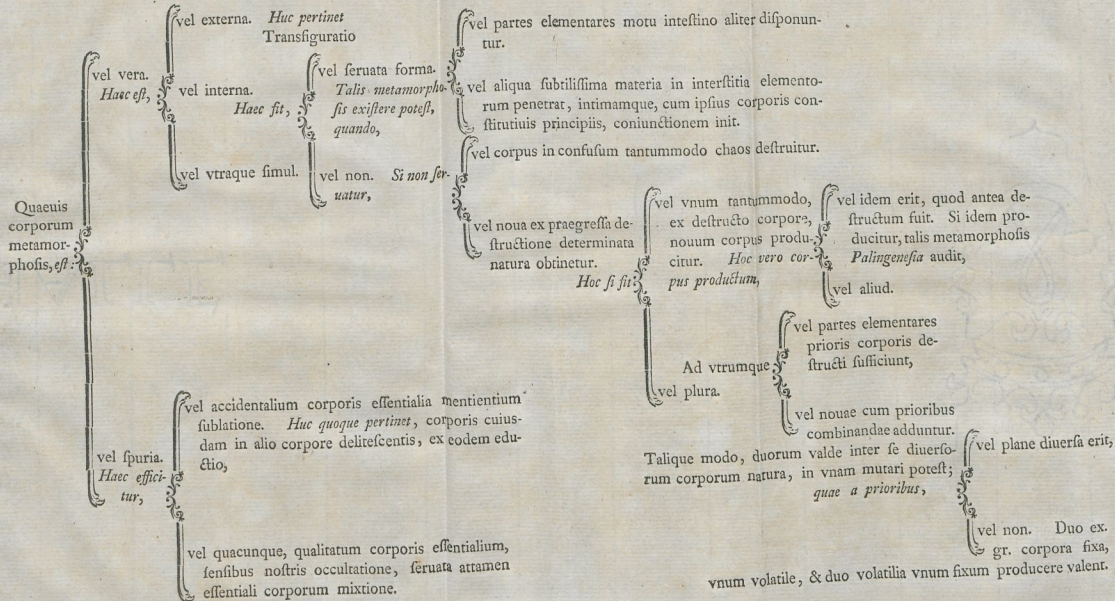 Quaeuis
corporum
metamor-
phoſis, eſt:
vel vera.
Haec eſt,
vel externa. Huc pertinet
Transfiguratio
vel interna.
Haec fit,
vel ſeruata forma.
Talis metamorpho-
ſis exiſtere poteſt,
quando,
vel partes elementares motu inteſtino aliter diſponun-
tur.
vel aliqua ſubtiliſſima materia in interſtitia elemento-
rum penetrat, intimamque, cum ipſius corporis con-
ſtitutiuis principiis, coniunctionem init.
vel non. Si non ſer-
uatur,
vel corpus in confuſum tantummodo chaos deſtruitur.
vel noua ex praegreſſa de-
ſtructione determinata
natura obtinetur.
Hoc ſi fit:
vel vnum tantummodo,
ex deſtructo corpore,
nouum corpus produ-
citur. Hoc vero cor-
pus productum,
vel idem erit, quod antea de-
ſtructum fuit. Si idem pro-
ducitur, talis metamorphoſis
Palingeneſia audit,
vel aliud.
vel plura.
Ad vtrumque
vel partes elementares
prioris corporis de-
ſtructi ſufficiunt,
vel nouae cum prioribus
combinandae adduntur.
Talique modo, duorum valde inter ſe diuerſo-
rum corporum natura, in vnam mutari poteſt;
quae a prioribus,
vel plane diuerſa erit,
vel non. Duo ex.
gr. corpora fixa,
vnum volatile, & duo volatilia vnum fixum producere valent.
vel vtraque ſimul.
vel ſpuria.
Haec effici-
tur,
vel accidentalium corporis eſſentialia mentientium
ſublatione. Huc quoque pertinet, corporis cuius-
dam in alio corpore deliteſcentis, ex eodem edu-
ctio,
vel quacunque, qualitatum corporis eſſentialium,
ſenſibus noſtris occultatione, ſeruata attamen
eſſentiali corporum mixtione.